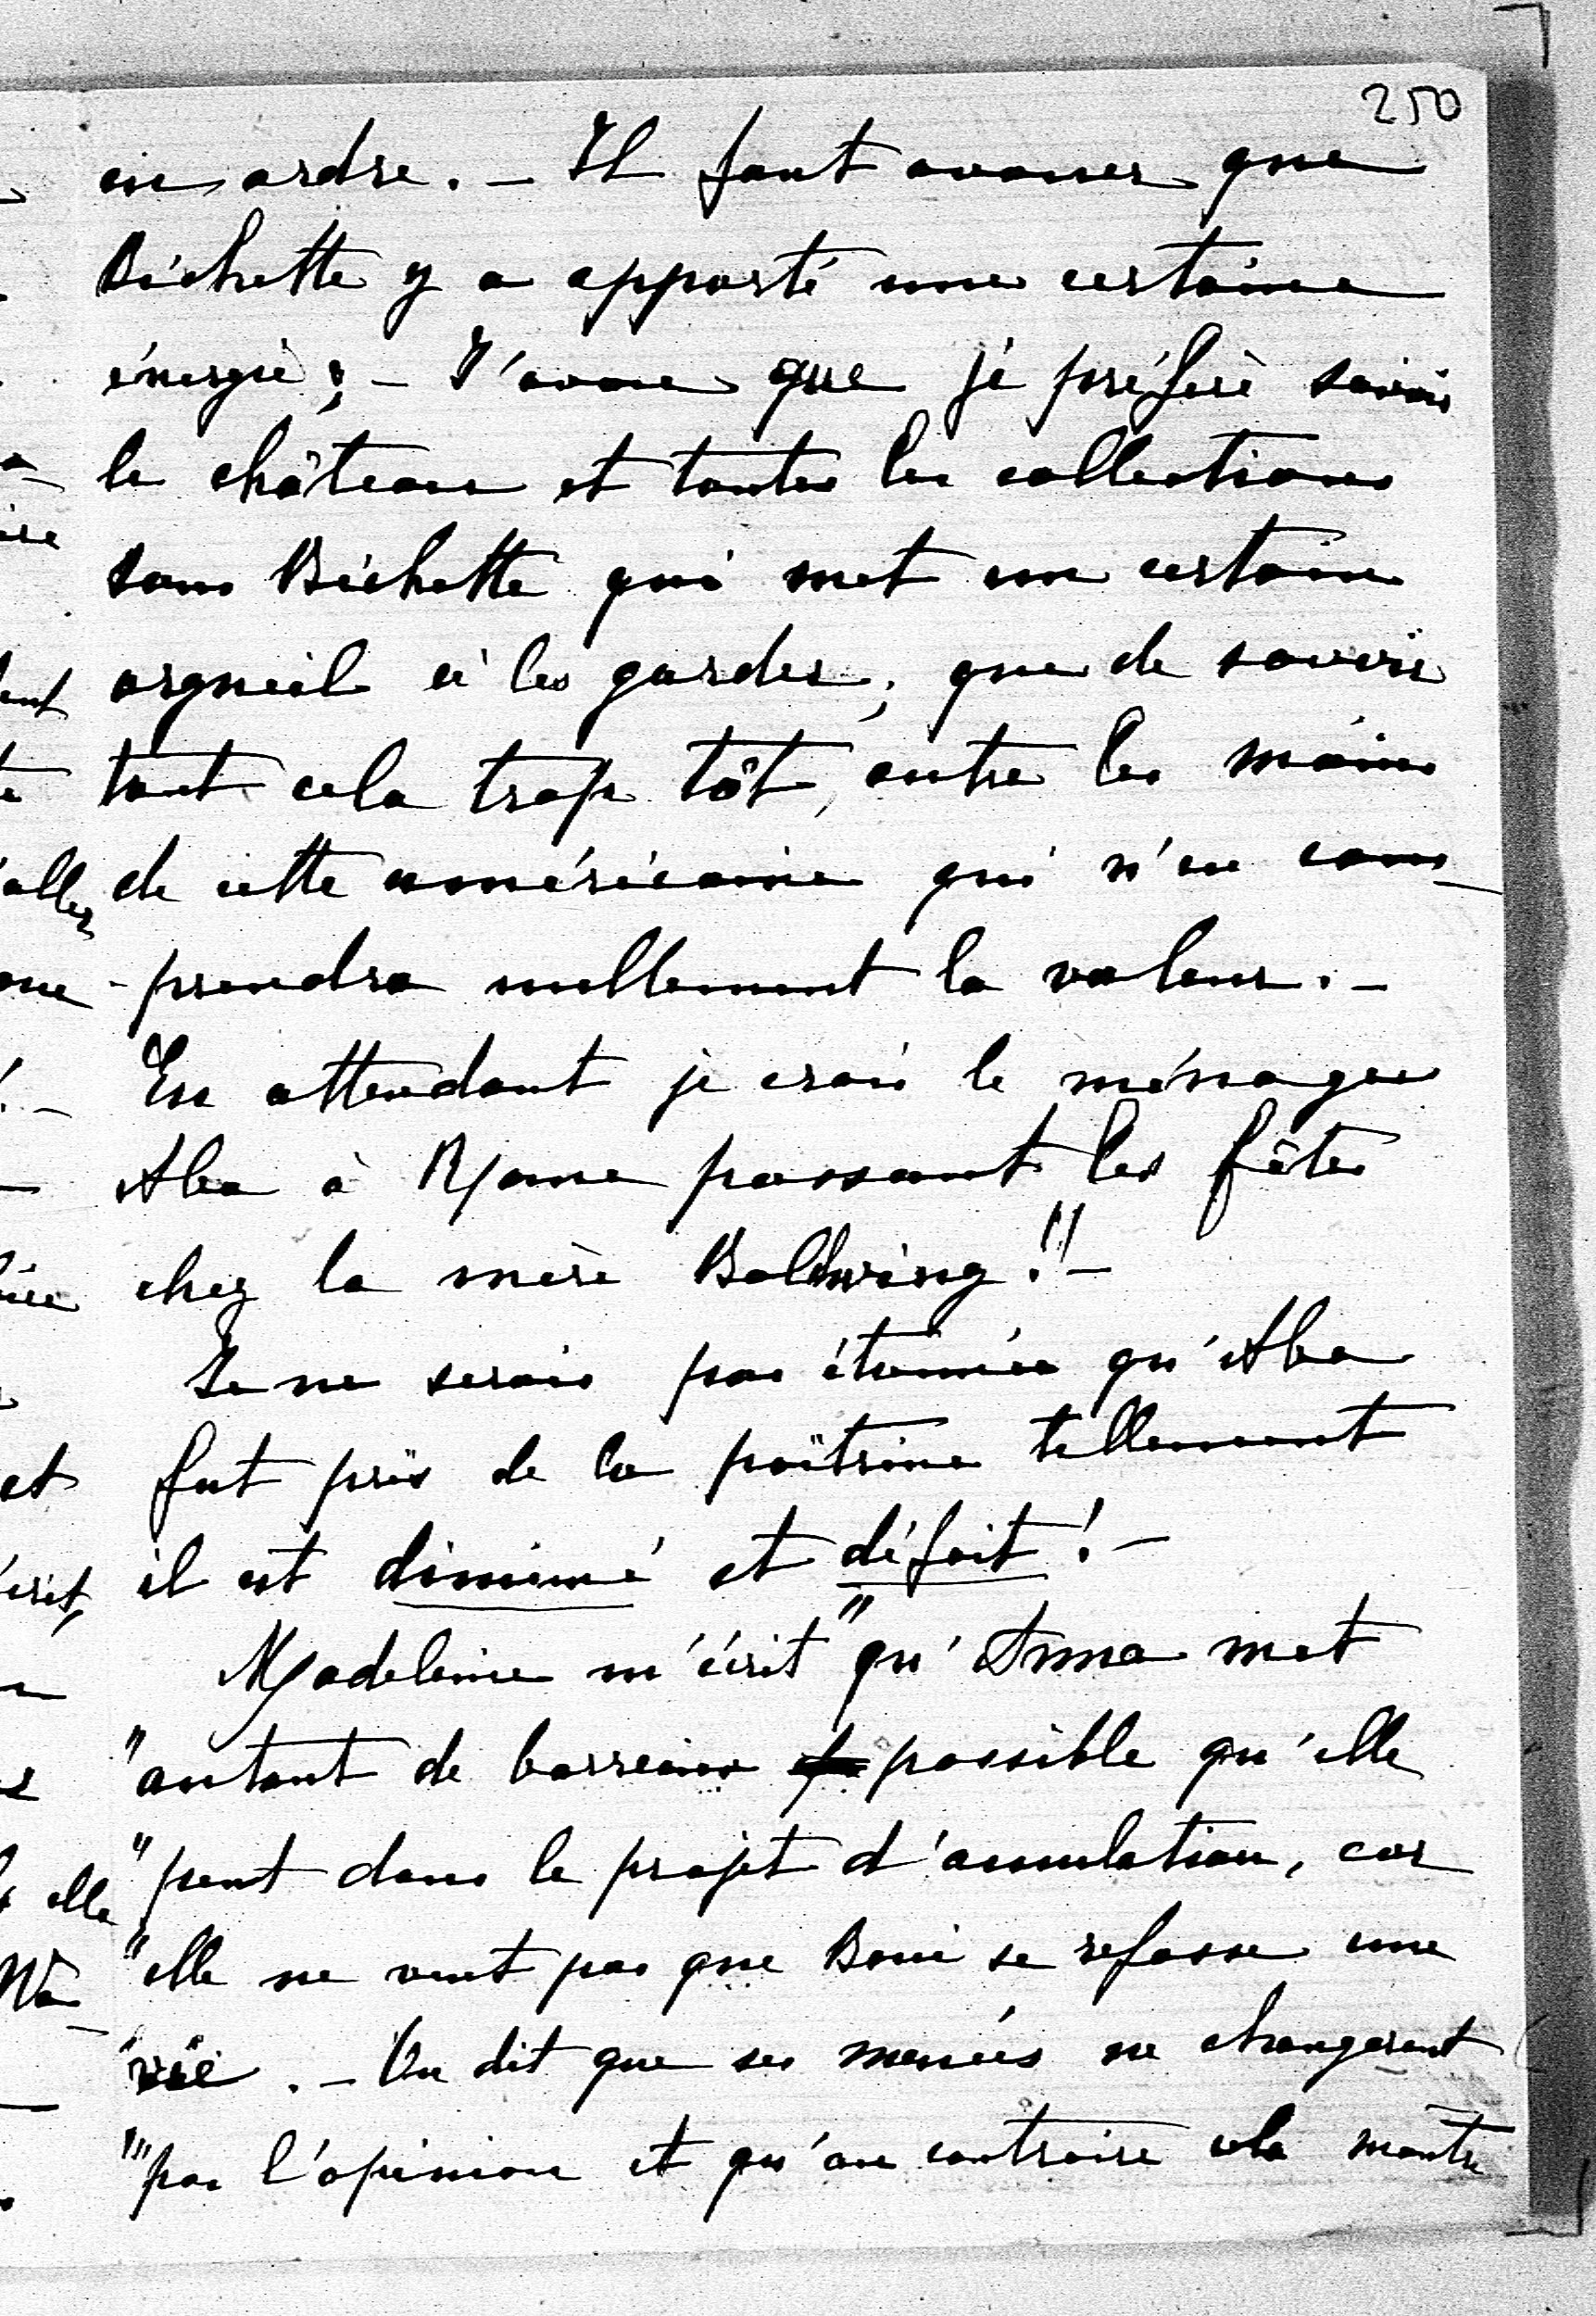 250
en ordre. – Il faut avouer que
Bichette y a apporté une certaine
énergie ; – J'avoue que je préfère savoir
le château et toutes les collections
sous Bichette qui met un certain
orgueil à les garder, que de savoir
tout cela trop tôt, entre les mains
de cette américaine qui n'en com-
-prendra nullement la valeur. –
En attendant je crois le ménage
Alba à Rome passant les fêtes
chez la mère Baldwing !! –
Je ne serais pas étonnée qu'Alba
fut pris de la poitrine tellement
il est diminué et défait ! –
Madeleine m'écrit "qu'Anna met
"autant de barreaux possible qu'elle
"peut dans le projet d'annulation, car
"elle ne veut pas que Boni se refasse une
"vie. – On dit que ses menées ne changeront
"pas l'opinion et qu'au contraire cela montre